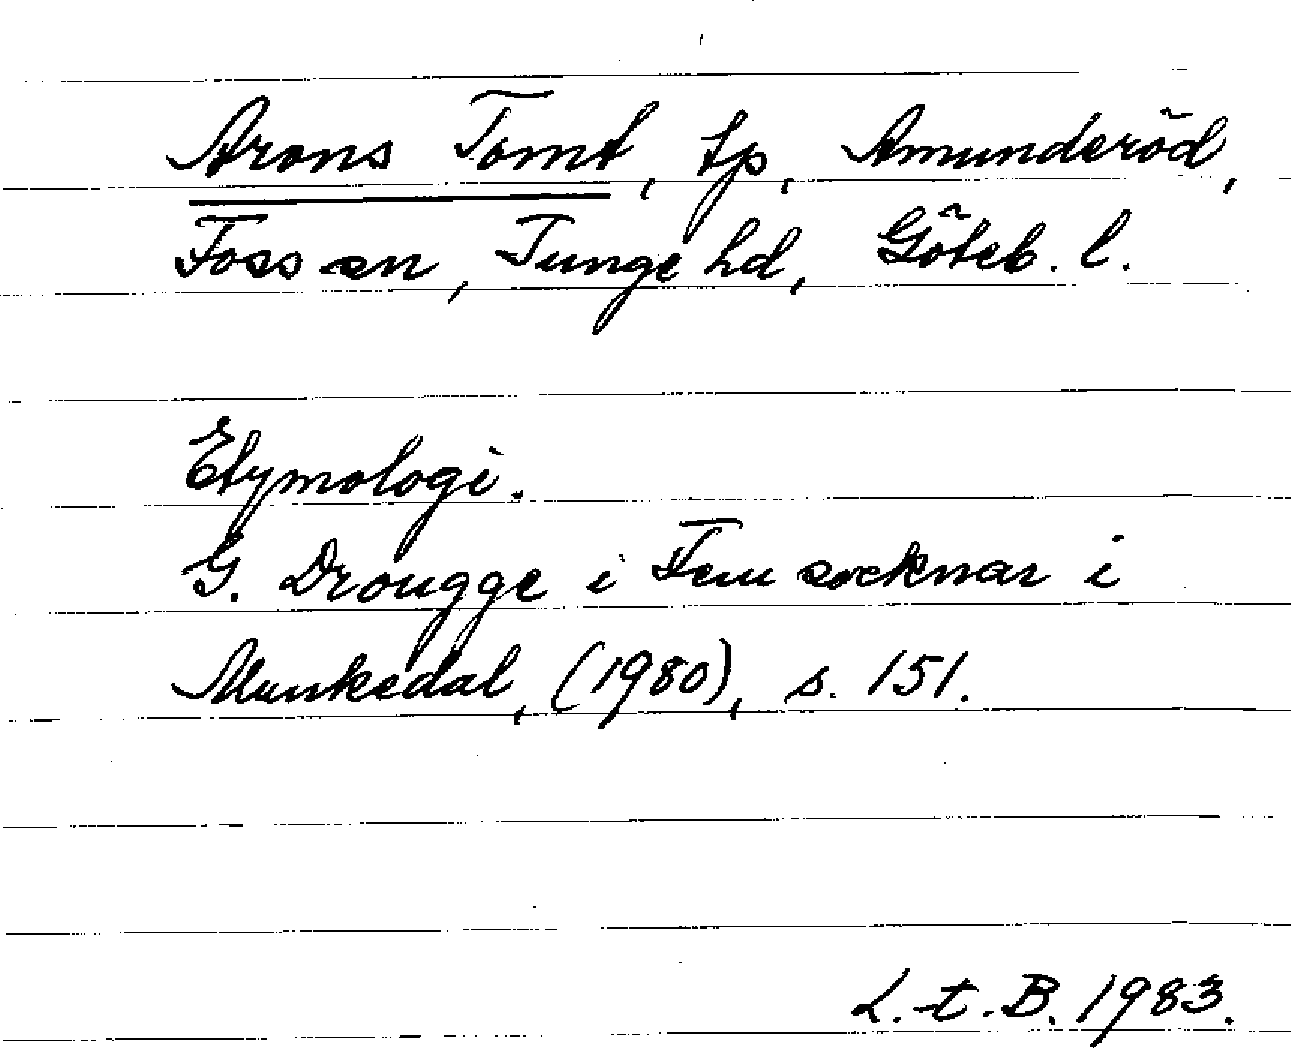 Arons Tomt, tp, Amunderöd,
Foss sn, Tunge hd, Göteb. l.
Etymologi.
G. Drougge i Fem socknar i
Munkedal, (1980), s. 151.
L. t. B. 1983.